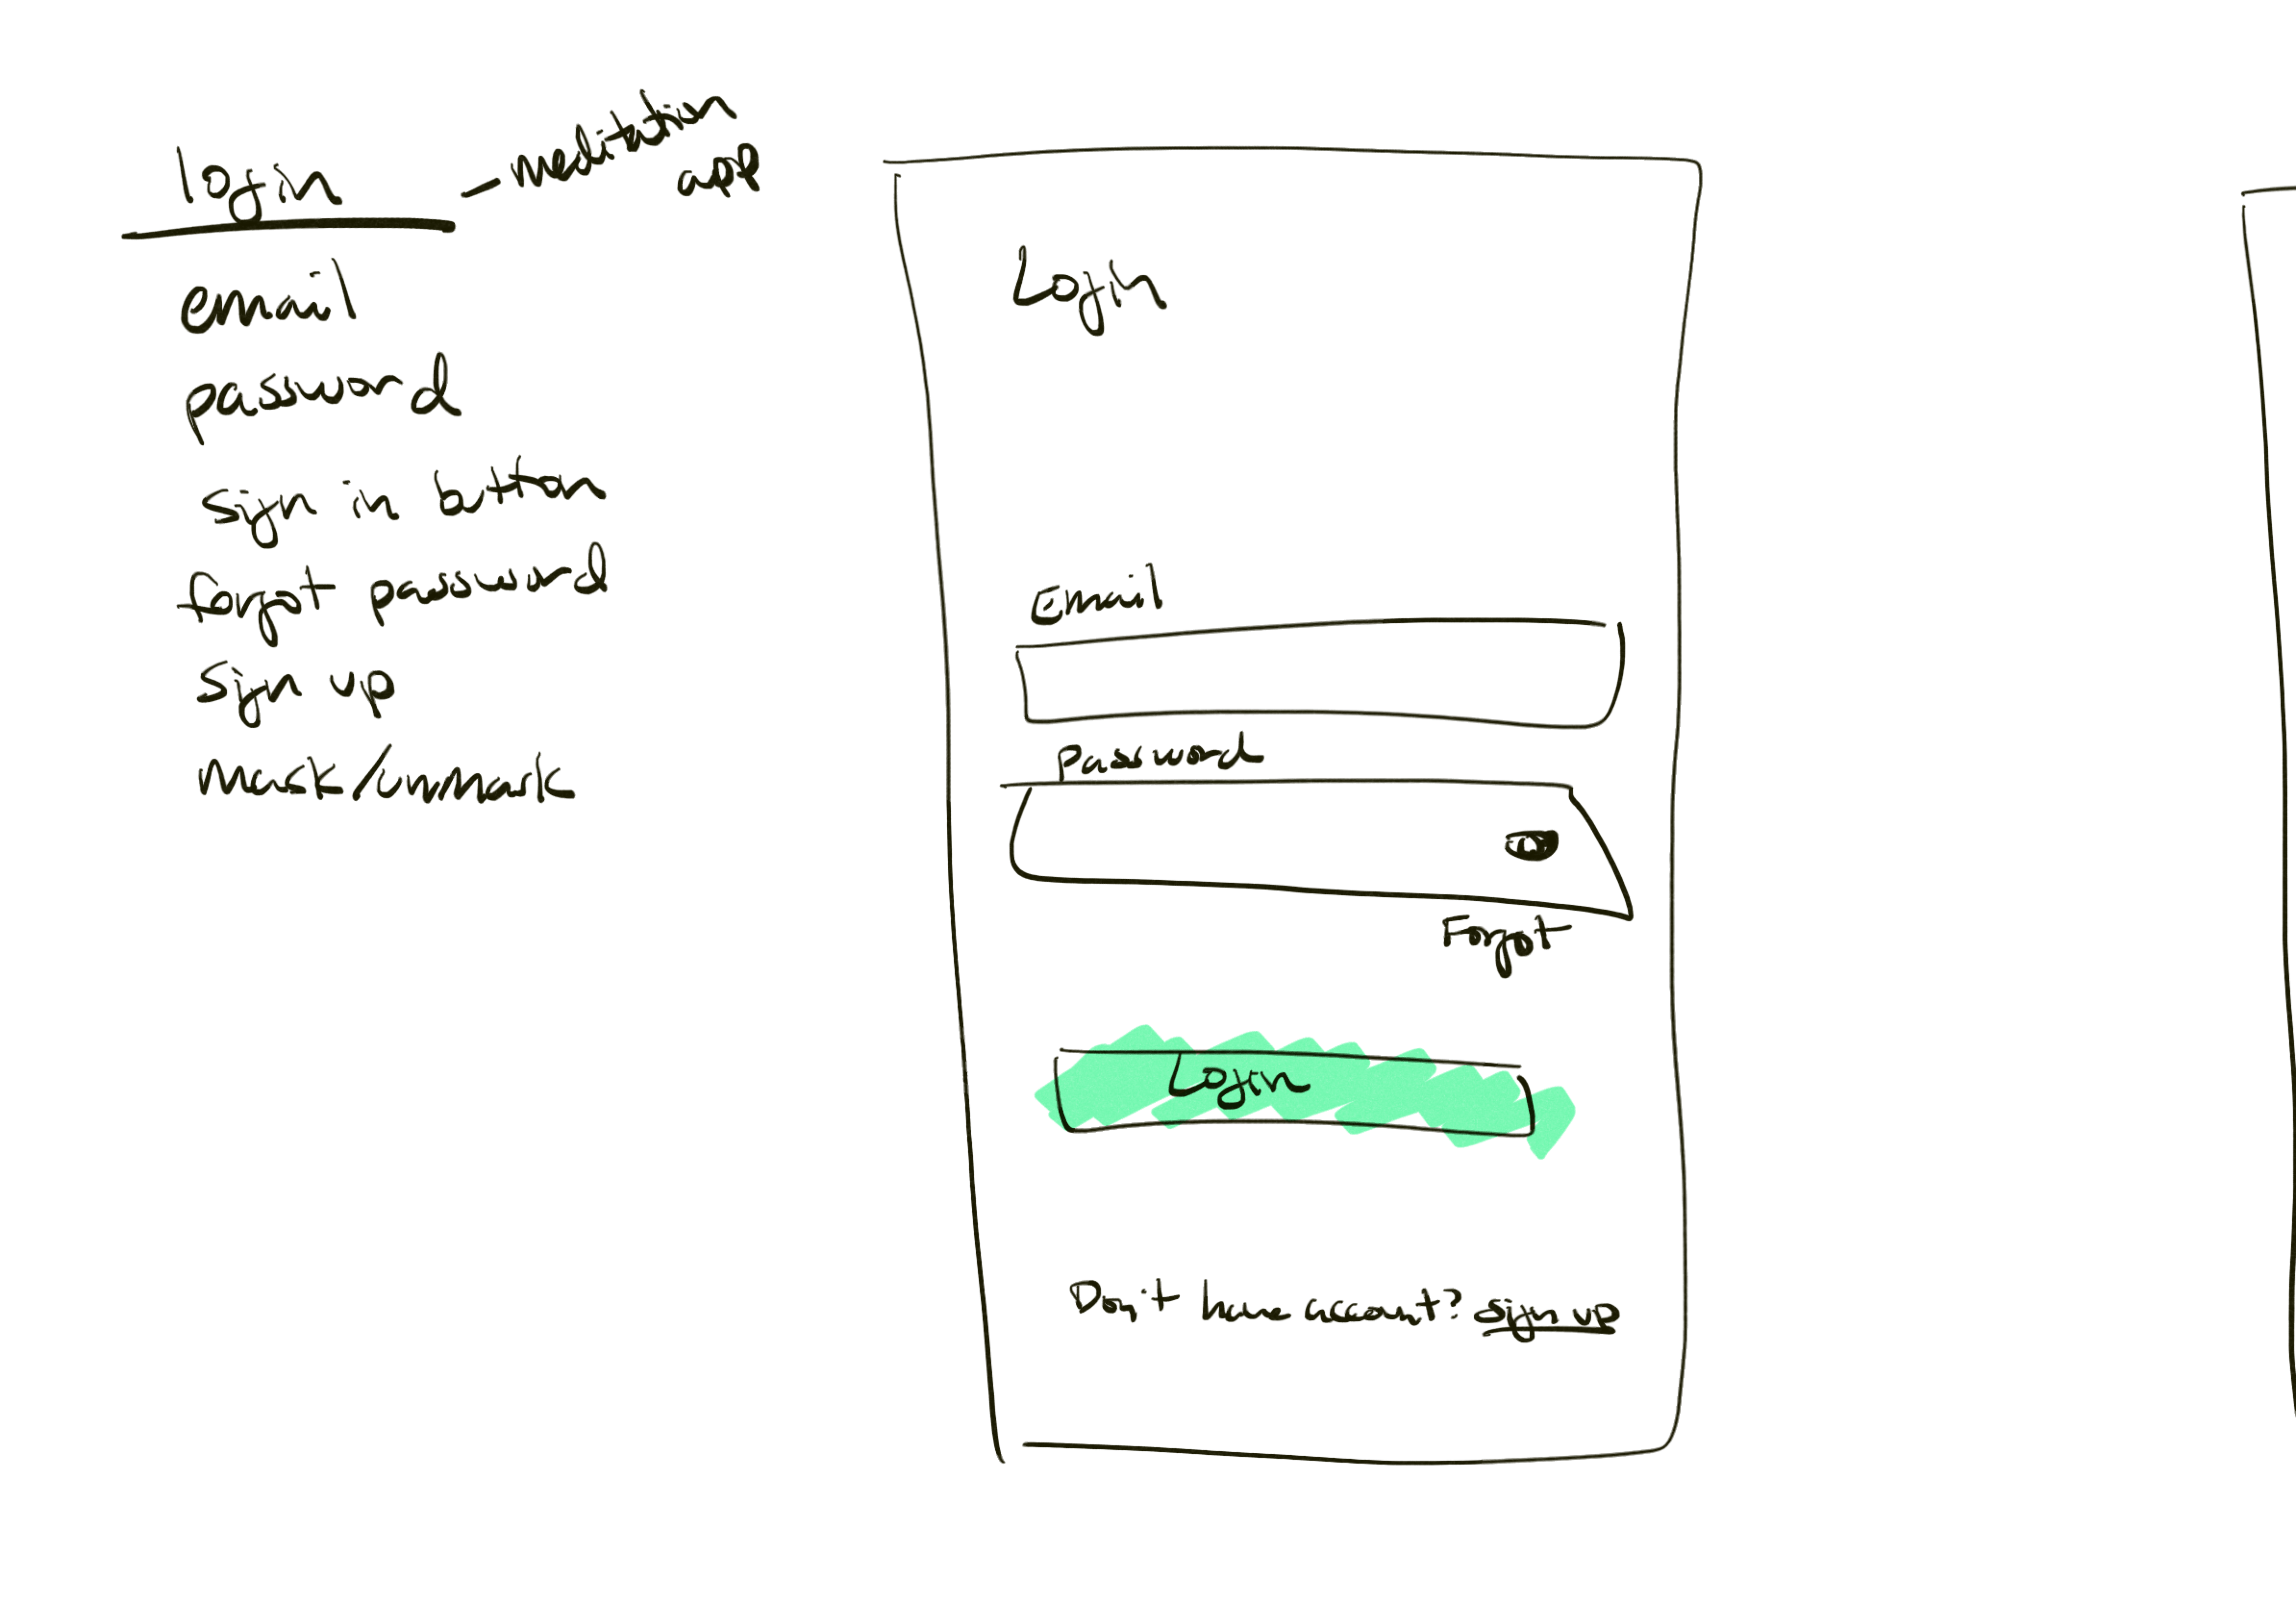 login - meditation
app
email
password
sign in button
forgot password
sign up
mask/unmask
Login
Email
Password
Forgot
Login
Don't have account? sign up